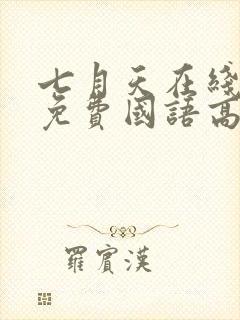 七月天在綫
免費國語高
羅賓漢